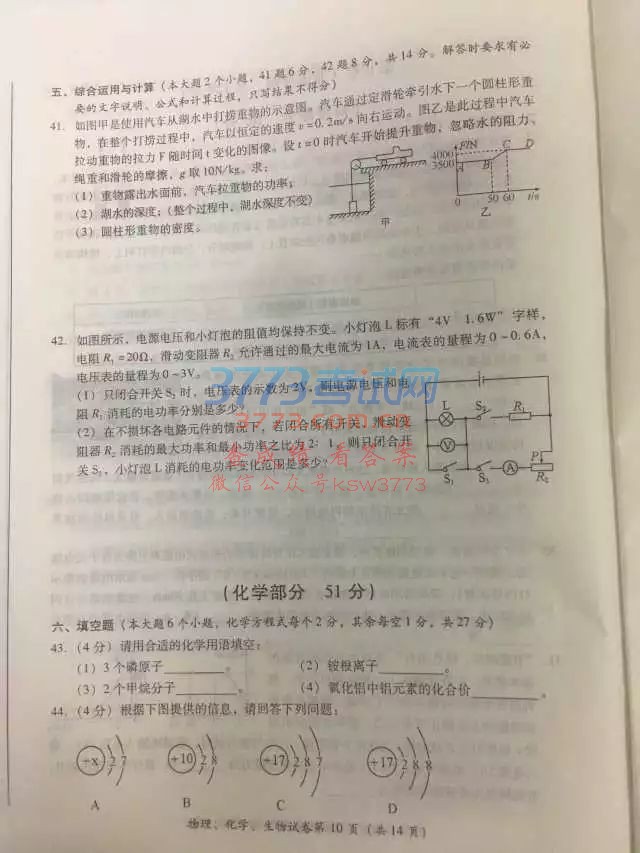 五、综合运用与计算（本大题2个小题，41题6分，42题8分，共14分。解答时要求有必
要的文字说明、公式和计算过程，只写结果不得分）
41. 如图甲是使用汽车从湖水中打捞重物的示意图。汽车通过定滑轮牵引水下一个圆柱形重
物，在整个打捞过程中，汽车以恒定的速度v=0.2m/s向右运动。图乙是此过程中汽车
拉动重物的拉力F随时间t变化的图像。设t=0时汽车开始提升重物，忽略水的阻力、
绳重和滑轮的摩擦，g取10N/kg。求：
（1）重物露出水面前，汽车拉重物的功率；
（2）湖水的深度；（整个过程中，湖水深度不变）
（3）圆柱形重物的密度。
甲
F/N
4000
3500
A B C D
0 50 60 t/s
乙
42. 如图所示，电源电压和小灯泡的阻值均保持不变。小灯泡L标有“4V 1.6W”字样，
电阻R₁=20Ω，滑动变阻器R₂允许通过的最大电流为1A，电流表的量程为0~0.6A，
电压表的量程为0~3V。
（1）只闭合开关S₂时，电压表的示数为2V，则电源电压和电
阻R₁消耗的电功率分别是多少？
（2）在不损坏各电路元件的情况下，若闭合所有开关，滑动变
阻器R₂消耗的最大功率和最小功率之比为2:1，则只闭合开
关S₃，小灯泡L消耗的电功率变化范围是多少？
L S₂ R₁
V
S₁ S₃ A P R₂
3773考试网
3773.com.cn
查成绩 看答案
微信公众号ksw3773
（化学部分 51分）
六、填空题（本大题6个小题，化学方程式每个2分，其余每空1分，共27分）
43.（4分）请用合适的化学用语填空：
（1）3个磷原子________。 （2）铵根离子________。
（3）2个甲烷分子________。 （4）氧化铝中铝元素的化合价________。
44.（4分）根据下图提供的信息，请回答下列问题：
+x 2 7 +10 2 8 +17 2 8 7 +17 2 8 8
A B C D
物理、化学、生物试卷第10页（共14页）